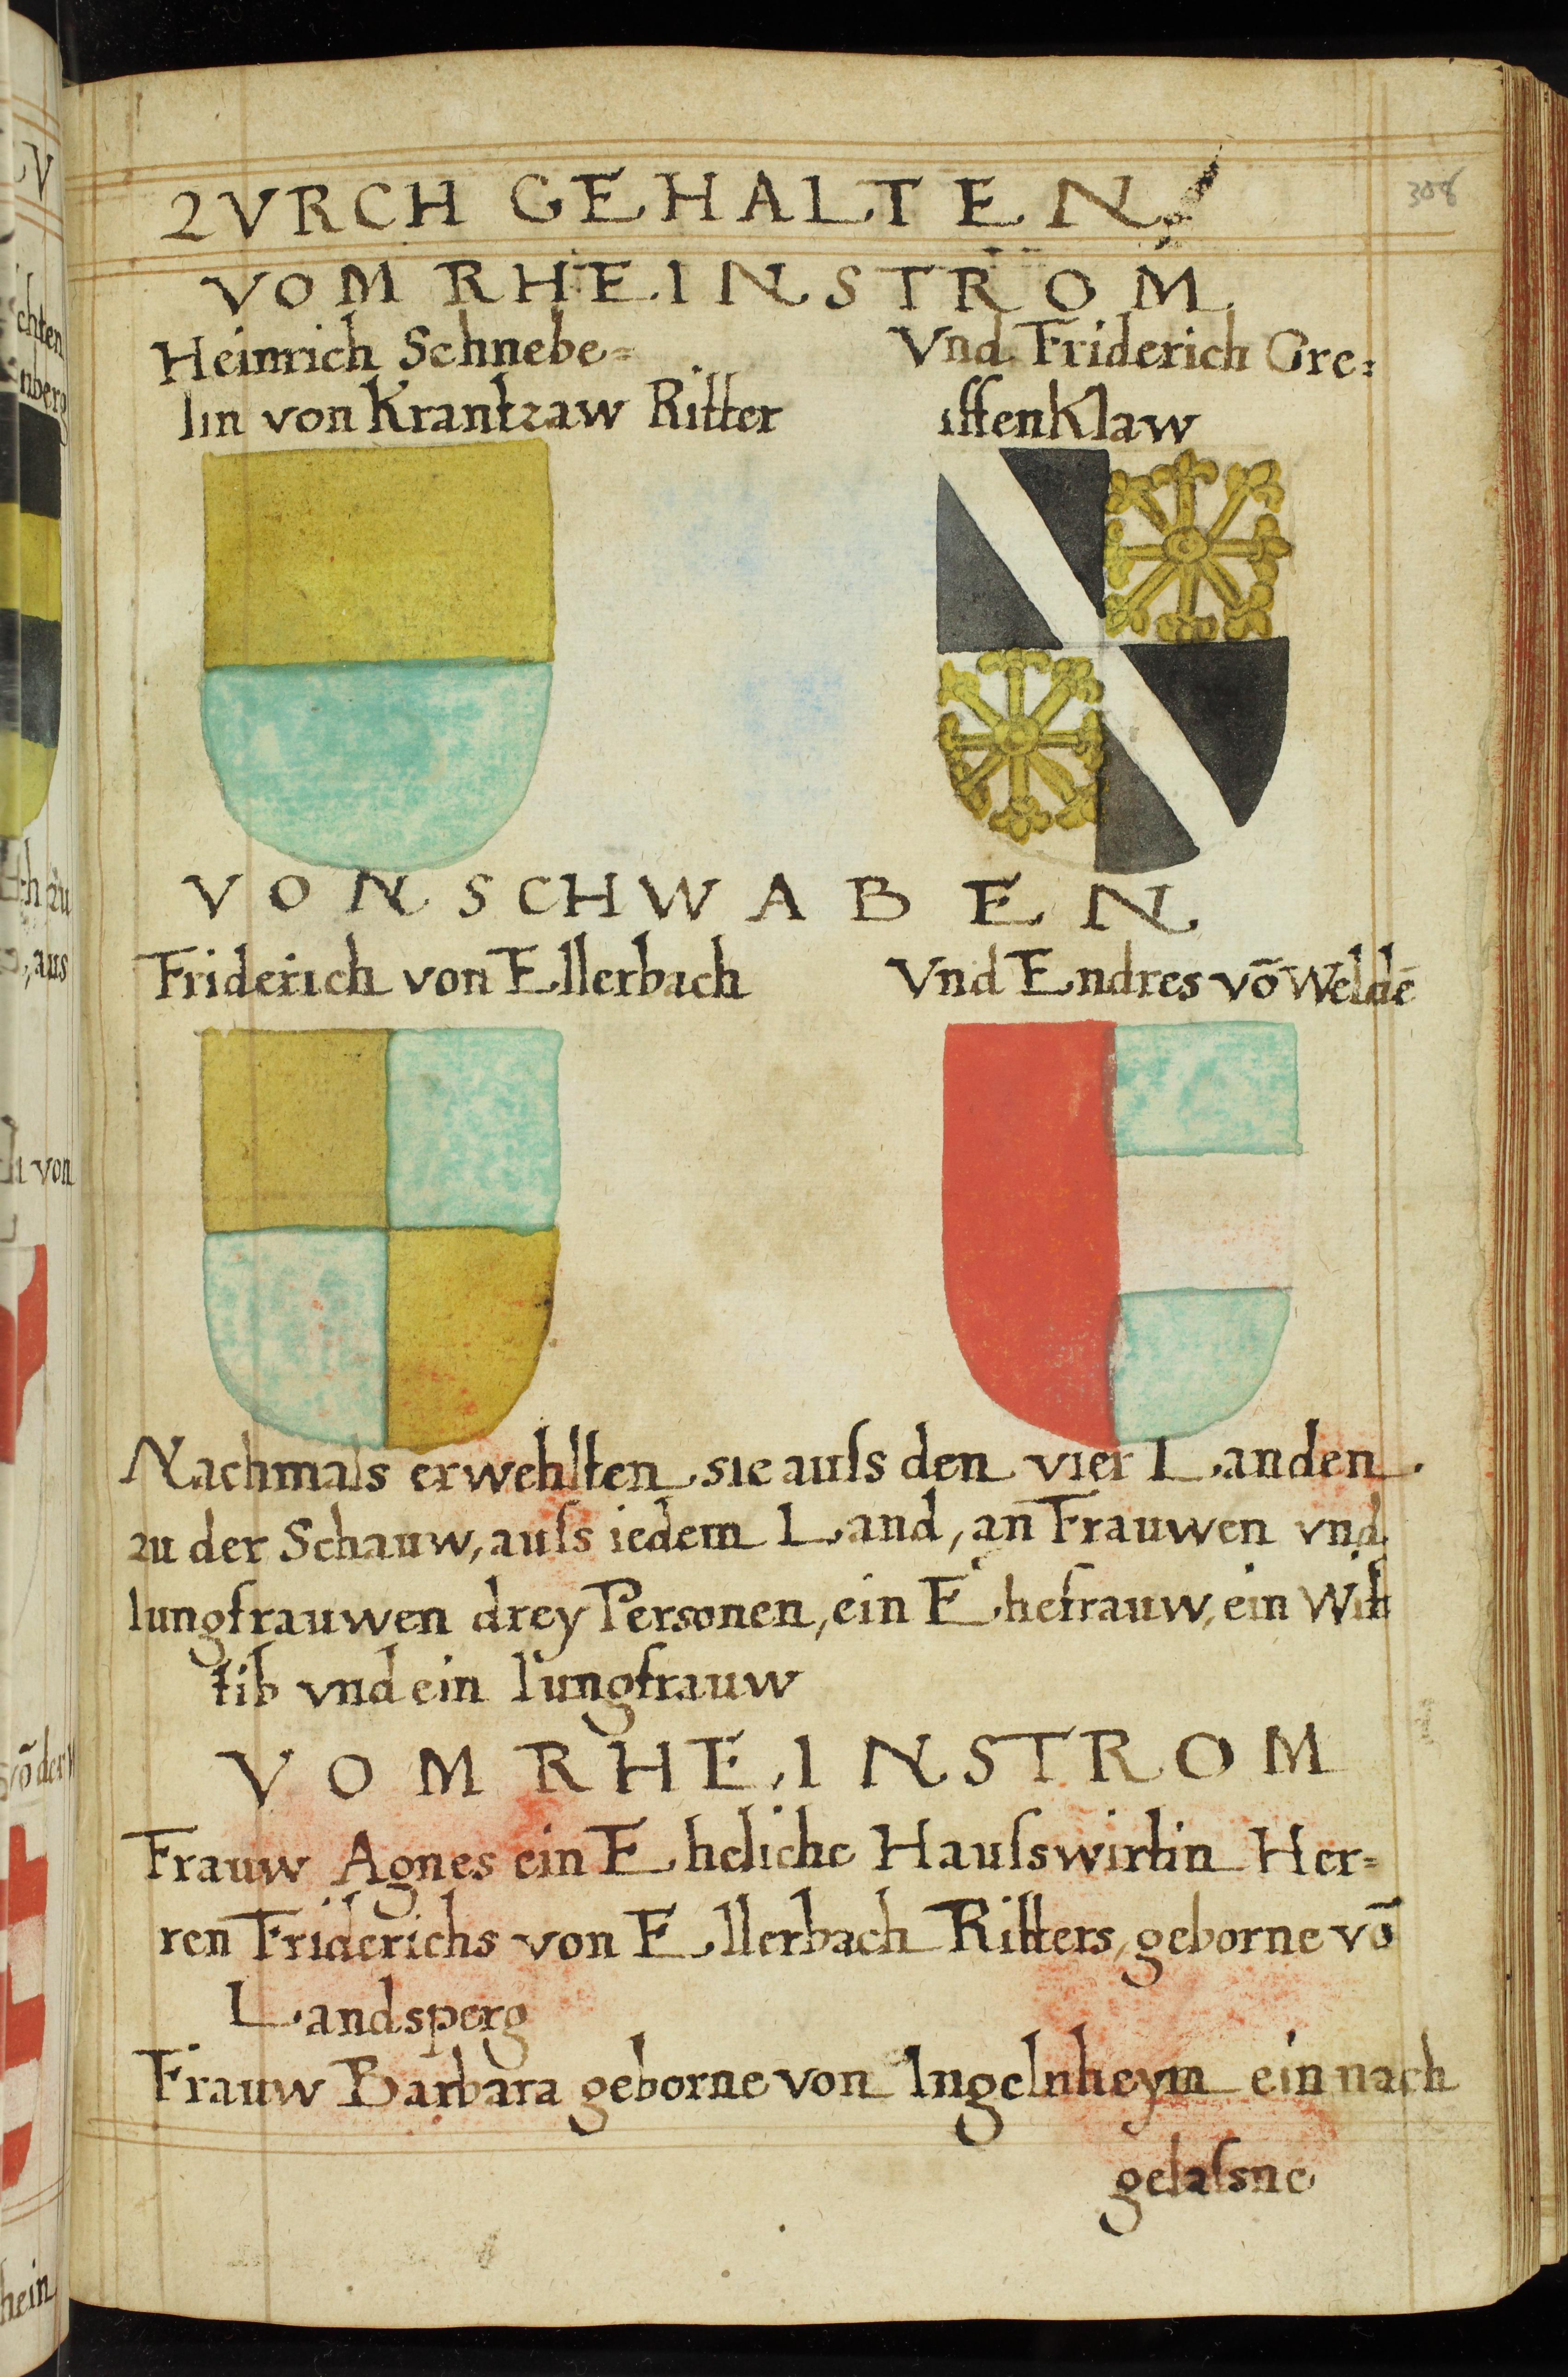 308
ZVRCH GEHALTEN/
VOM RHEINSTROM
Heinrich Schnebe=
lin von Krantzaw Ritter
Vnd Friderich Gre=
iffenKlaw
VON SCHWABEN
Friderich von Ellerbach
Vnd Endres vō Weldē
Nachmals erwehlten sie auſs den vier Landen
zu der Schauw, auſs iedem Land, an Frauwen vnd
Iungfrauwen drey Personen, ein Ehefrauw, ein Wit
tib vnd ein Iungfrauw
VOM RHEINSTROM
Frauw Agnes ein Eheliche Hauſswirtin Her=
ren Friderichs von Ellerbach Ritters, geborne vō
Landsperg
Frauw Barbara geborne von Ingelnheym ein nach
gelaſsne